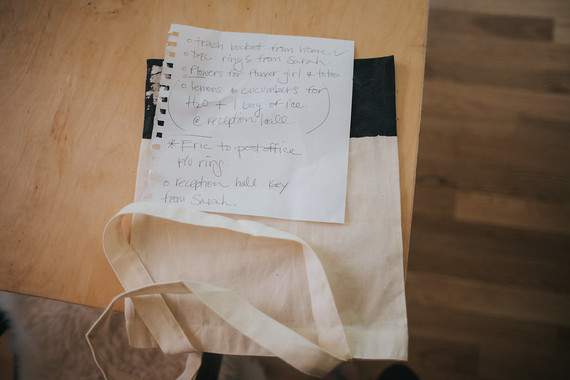 o trash bucket from home ✓
o rings from Sarah
o Flowers for flower girl & totes
o lemons & cucumbers for
H2O + 1 bag of ice
@ reception hall
* Eric to post office
P/U ring
o reception hall key
from Sarah.